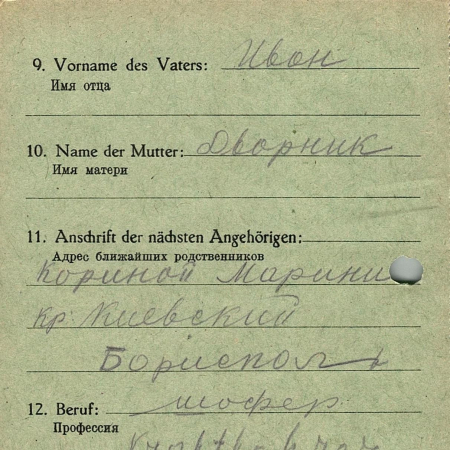 9. Vorname des Vaters: Ивон
Имя отца
10. Name der Mutter: Дворник
Имя матери
11. Anschrift der nächsten Angehörigen:
Адрес ближайших родственников
Кориной Марини
кр. Киевский
Бориспол
12. Beruf: шофер
Профессия